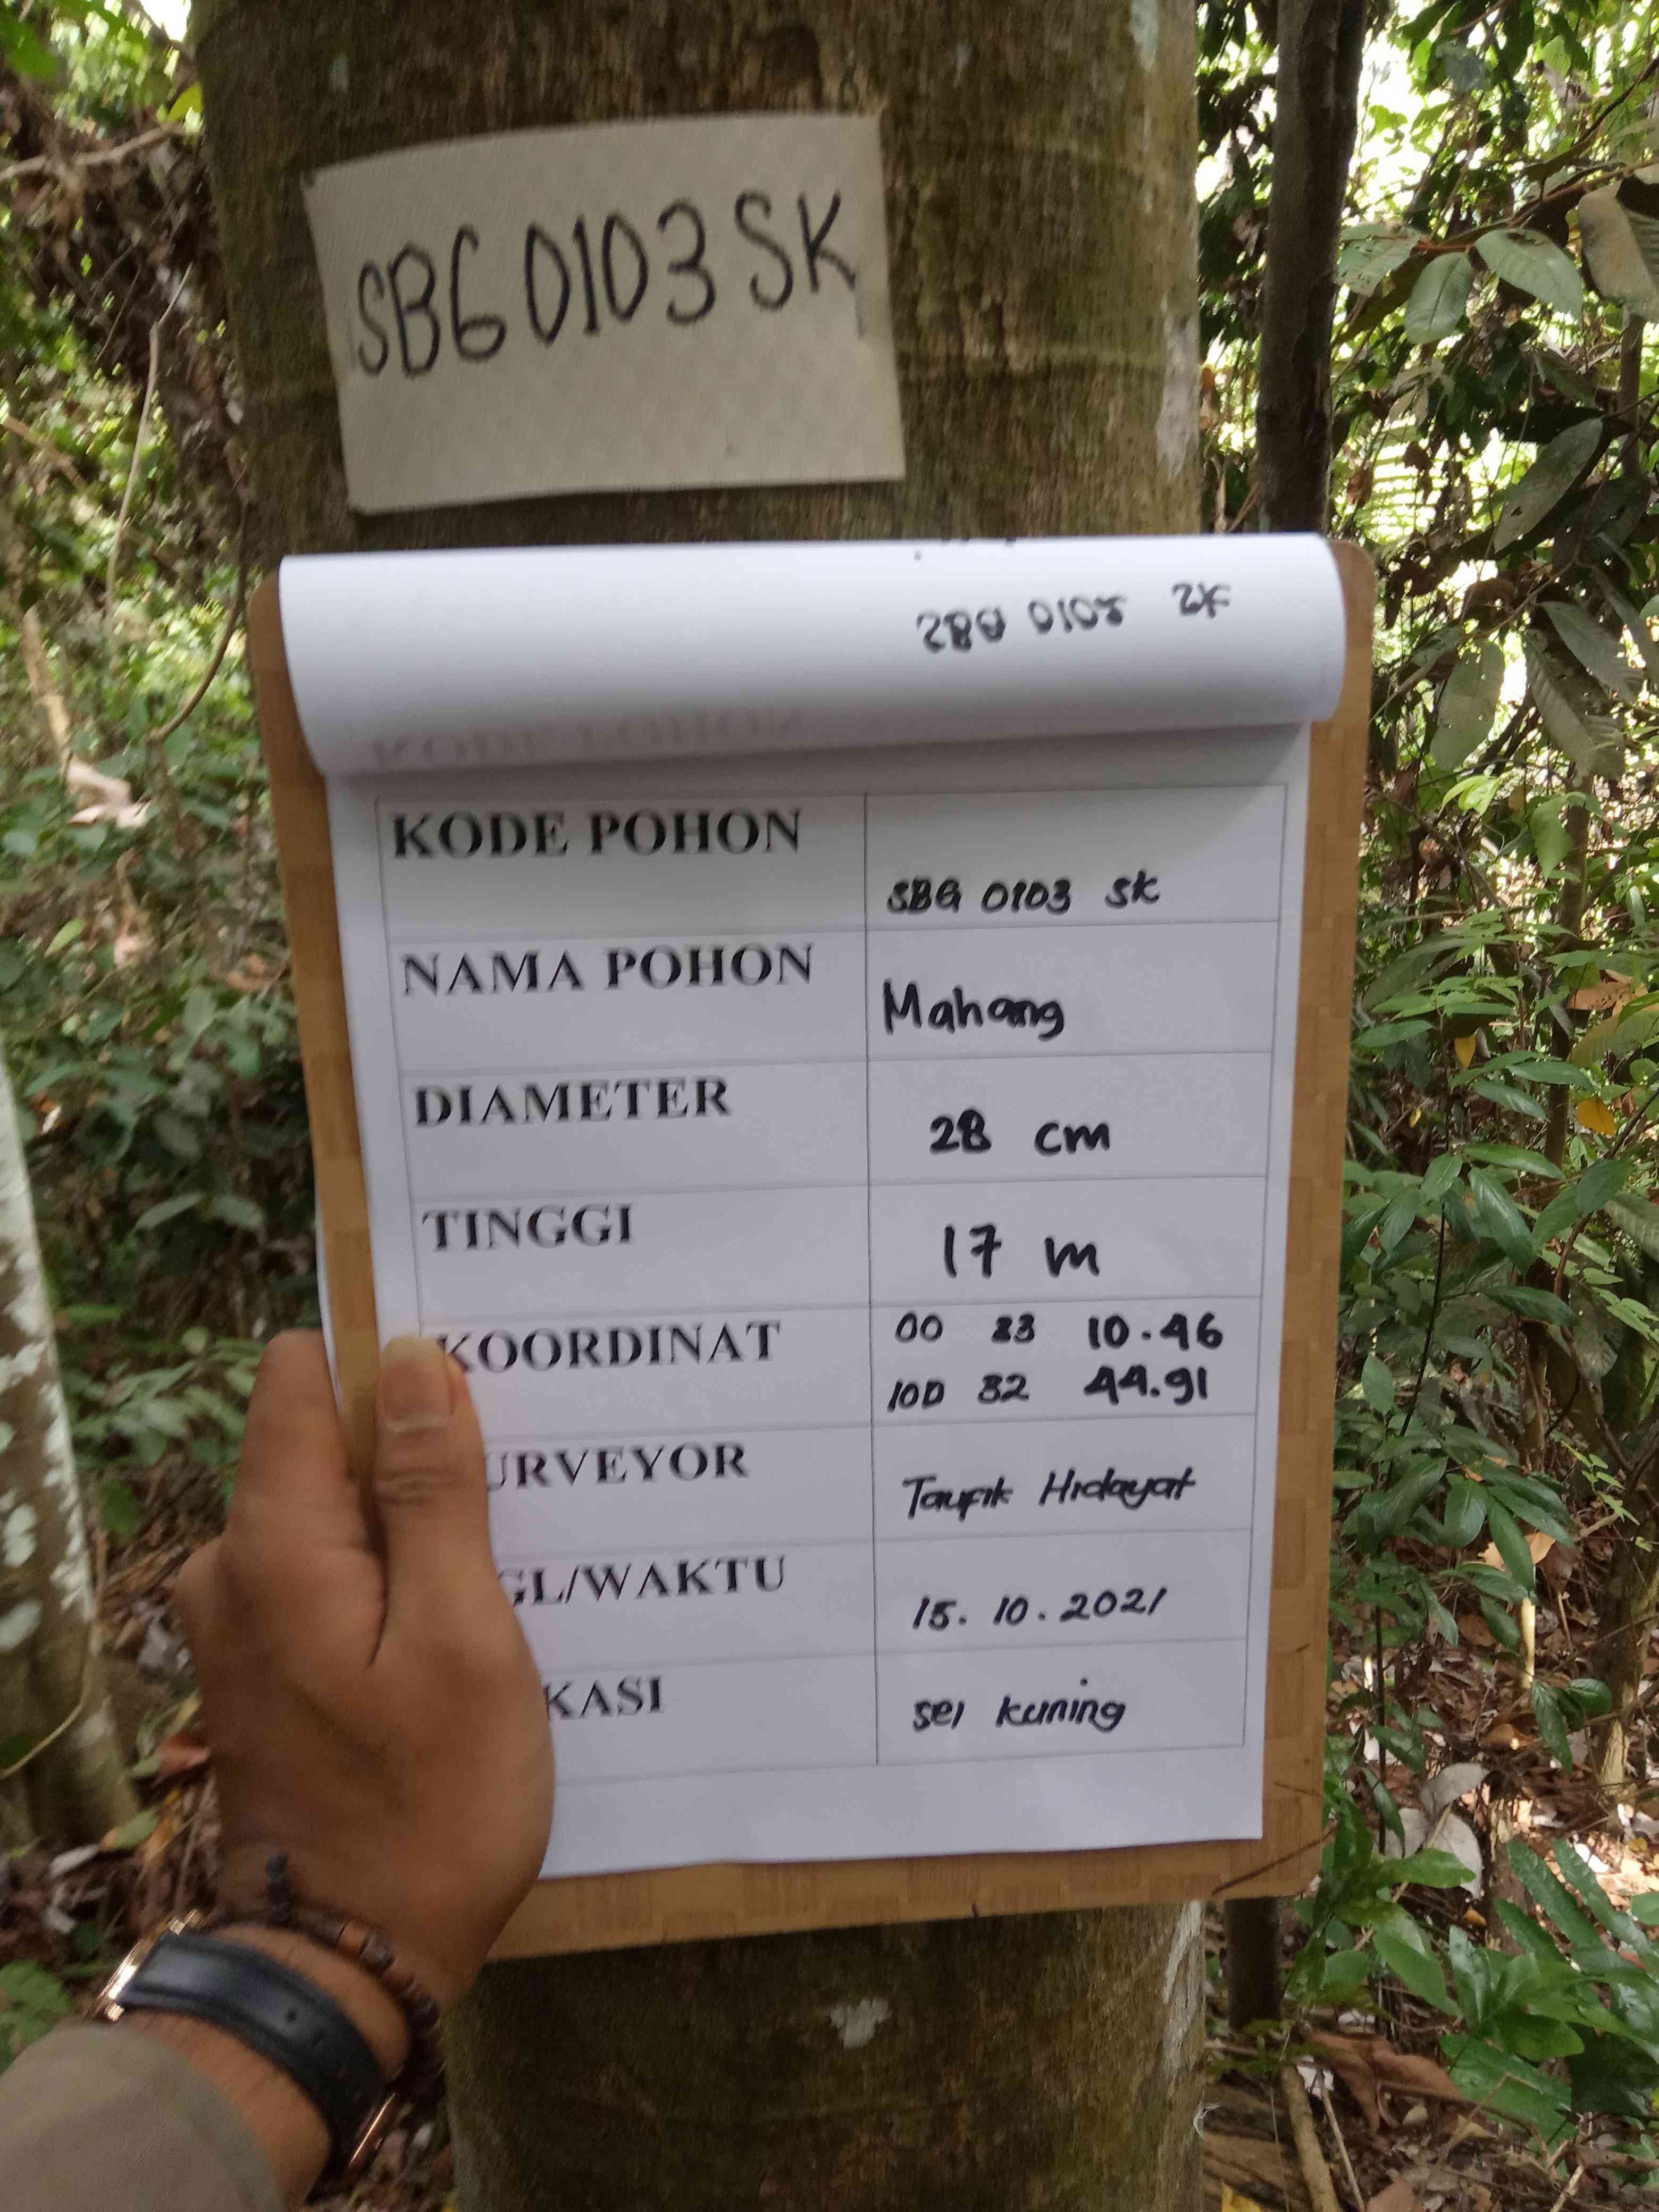 SBG 0103 SK
SBG 0102 SK
KODE POHON
KODE POHON SBG 0103 SK
NAMA POHON Mahang
DIAMETER 28 cm
TINGGI 17 m
KOORDINAT 00 23 10.46
100 32 44.91
URVEYOR Taufik Hidayat
GL/WAKTU 15.10.2021
KASI sei kuning